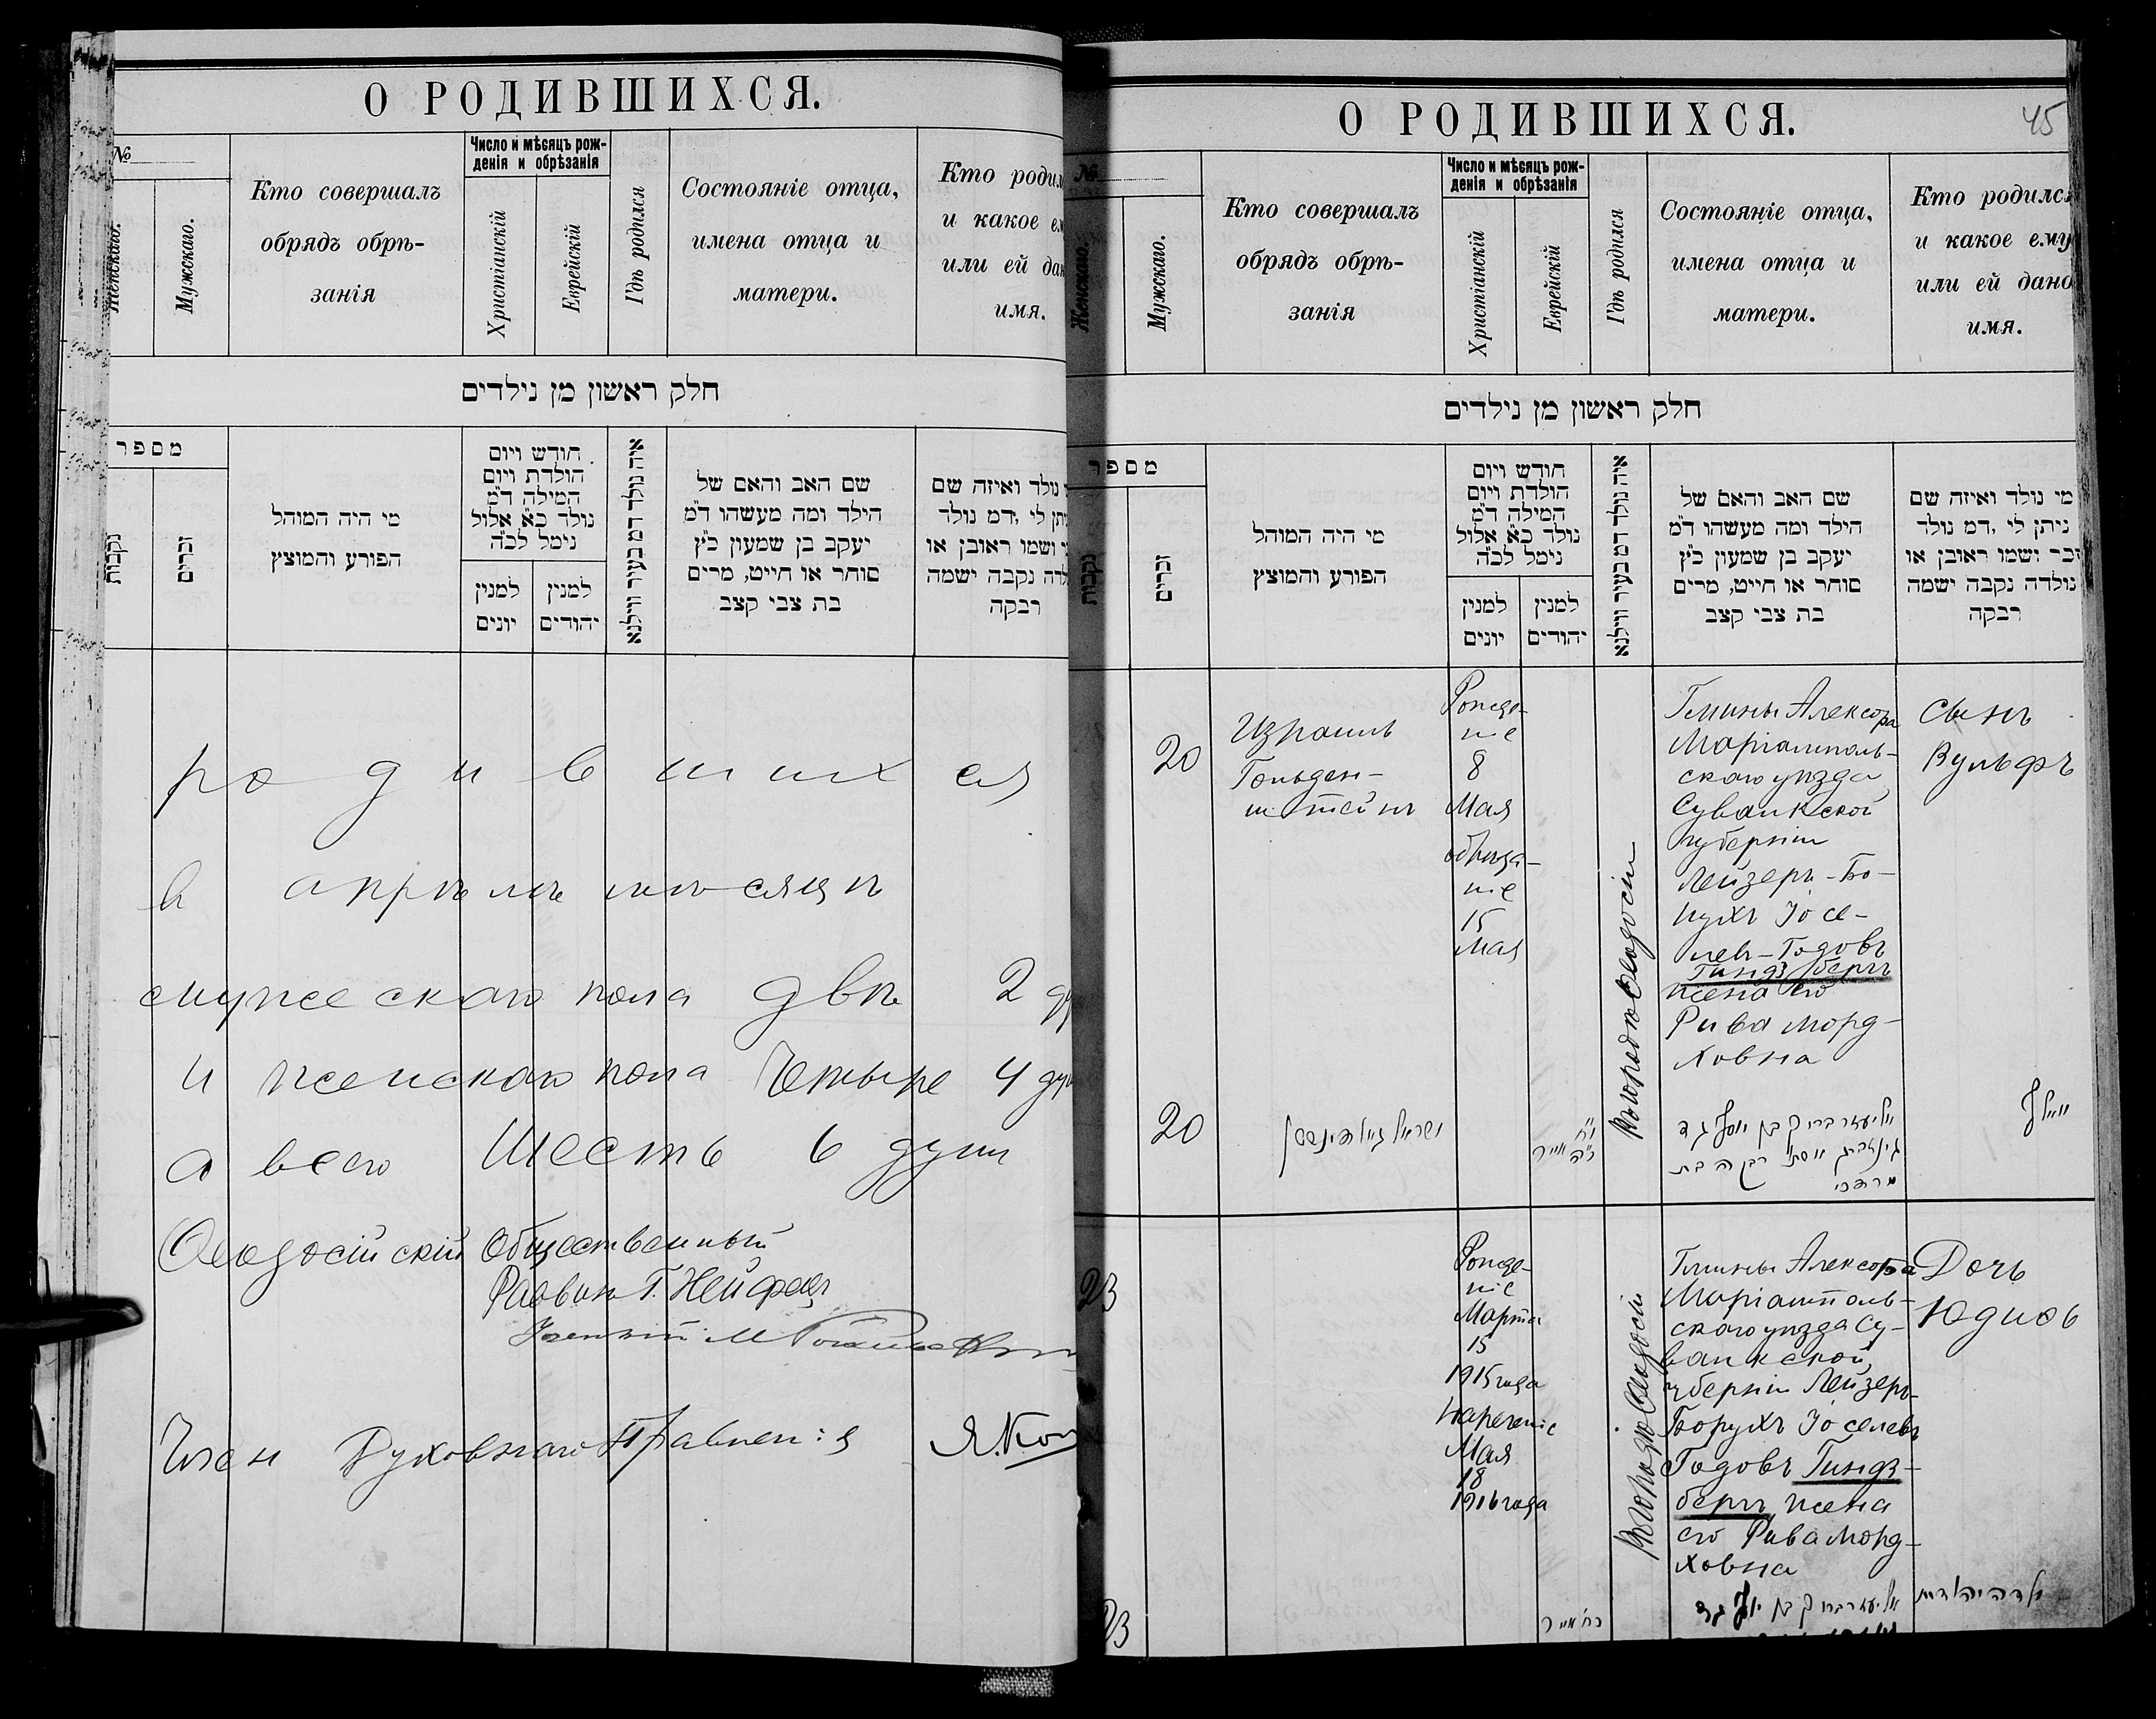 О РОДИВШИХСЯ.
№
Женскаго.
Мужскаго.
Кто совершалъ
обрядъ обрѣ-
занія
Число и мѣсяцъ рож-
денія и обрѣзанія
Христіанскій
Еврейскій
Гдѣ родился
Состояніе отца,
имена отца и
матери.
Кто родил
и какое ем
или ей дан
имя.
חלק ראשון מן נילדים
מספר
נקבות
זכרים
מי היה המוהל
הפורע והמוצץ
חודש ויום
הולדת ויום
המילה ד״מ
נולד כ״א אלול
נימל לכ״ה
למנין
יונים
למנין
יהודים
איה נולד דמ בעיר ווילנא
שם האב והאם של
הילד ומה מעשהו ד״מ
יעקב בן שמעון כ״ץ
סוחר או חייט, מרים
בת צבי קצב
נולד ואיזה שם
יתן לי ,דמ נולד
ושמו ראובן או
לדה נקבה ישמה
רבקה
родившихся
в апрѣлѣ мѣсяцѣ
мужескаго пола двѣ 2 ду
и женскаго пола Четыре 4 душ
а всего Шесть 6 душ
Ѳеодосійскій Общественный
Раввинъ Г. Нейфахъ
Член Духовнаго Правленія Я. Ко
О РОДИВШИХСЯ.
45
№
Женскаго.
Мужскаго.
Кто совершалъ
обрядъ обрѣ-
занія
Число и мѣсяцъ рож-
денія и обрѣзанія
Христіанскій
Еврейскій
Гдѣ родился
Состояніе отца,
имена отца и
матери.
Кто родился
и какое ему
или ей дано
имя.
חלק ראשון מן נילדים
מספר
נקבות
זכרים
מי היה המוהל
הפורע והמוצץ
חודש ויום
הולדת ויום
המילה ד״מ
נולד כ״א אלול
נימל לכ״ה
למנין
יונים
למנין
יהודים
איה נולד דמ בעיר ווילנא
שם האב והאם של
הילד ומה מעשהו ד״מ
יעקב בן שמעון כ״ץ
סוחר או חייט, מרים
בת צבי קצב
מי נולד ואיזה שם
ניתן לי ,דמ נולד
זכר ושמו ראובן או
נולדה נקבה ישמה
רבקה
20
Израиль
Гольден-
штейнъ
Рожде-
ніе
8
Мая
обрѣза-
ніе
15
Мая
Въ городѣ Ѳеодосіи
Гмины Алексора
Маріампаль-
скаго уѣзда
Сувалкской
губерніи
Лейзеръ-Бо-
рухъ Іосе-
левъ-Годовъ
Гиндзбергъ
жена его
Рива Морд-
ховна
Сынъ
Вульфъ
20
ישראל גאלדענשטיין
י״ח
כ״ה אייר
אליעזר ברוך בן יוסף גד
גינזבורג ואשתו רבקה בת
מרדכי
וואלף
23
Рожде-
ніе
Марта
15
1915 года
Нареченіе
Мая
18
1916 года
Въ городѣ Ѳеодосіи
Гмины Алексора
Маріампаль-
скаго уѣзда Су-
валкской
губерніи Лейзеръ-
Борухъ Іоселевъ
Годовъ Гиндз-
бергъ, жена
его Рива Морд-
ховна
Дочь
Юдиѳь
23
אליעזר ברוך בן יוסף גד
ילדה יהודית